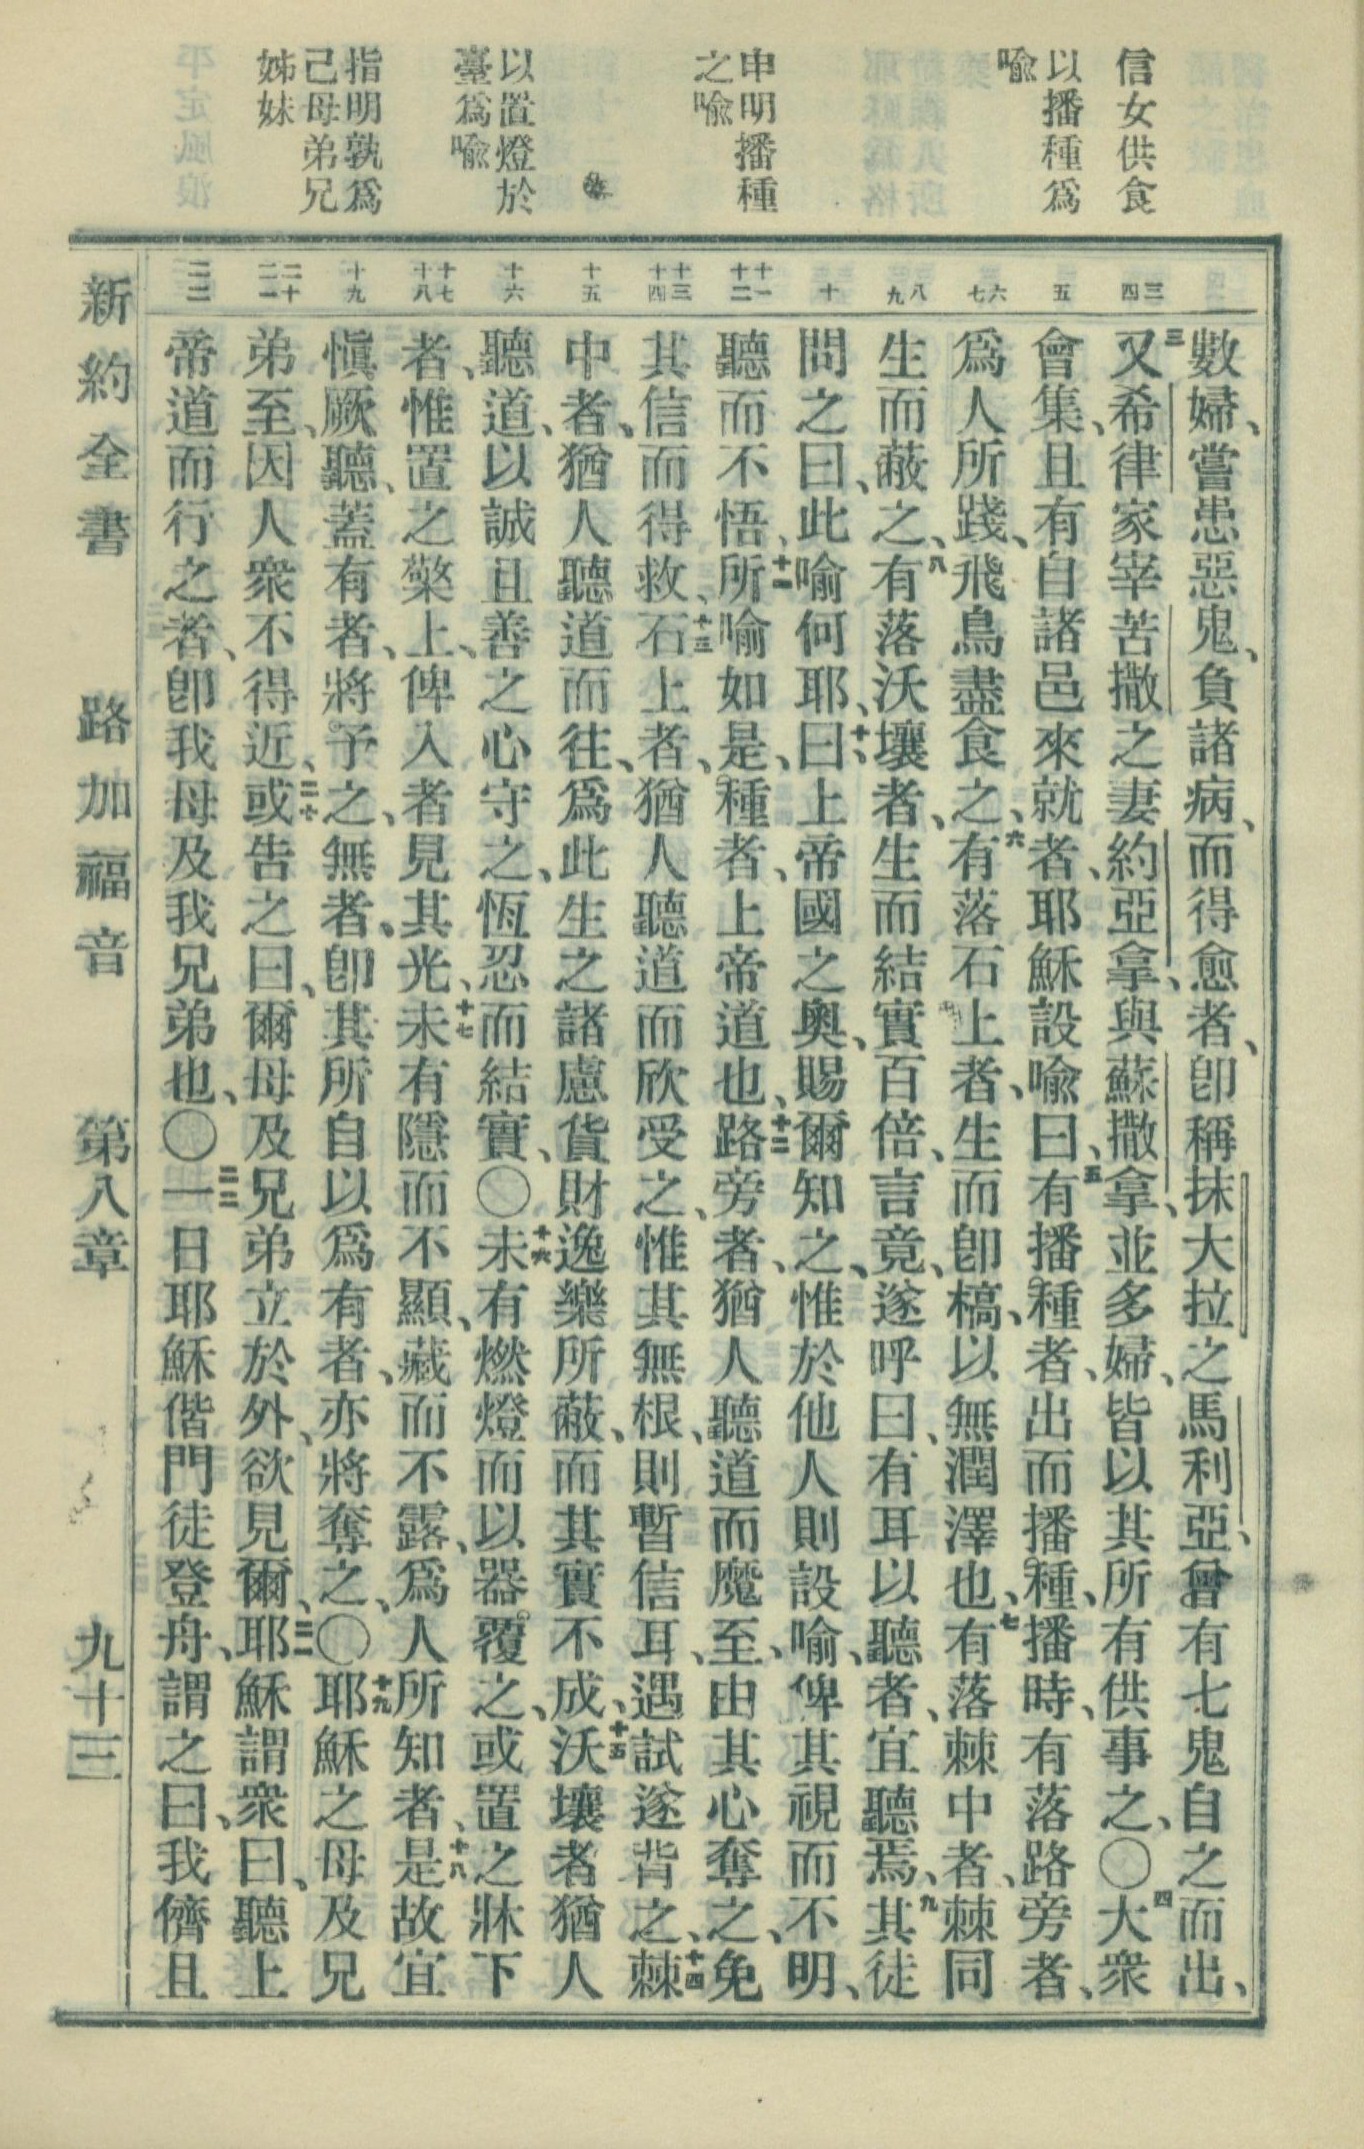 信女供食
以播種爲
喩
申明播種
之喩
以置燈於
臺爲喩
指明孰爲
己母弟兄
姊妹
三 四
五
六 七
八 九
十
十一 十二
十三 十四
十五
十六
十七 十八
十九
二十 二一
二二
數婦、嘗患惡鬼、負諸病、而得愈者、卽稱抹大拉之馬利亞、曾有七鬼自之而出、
三又希律家宰苦撒之妻約亞拿、與蘇撒拿、並多婦、皆以其所有供事之、〇四大衆
會集、且有自諸邑來就者、耶穌設喩曰、五有播種者、出而播種、播時、有落路旁者、
爲人所踐、飛鳥盡食之、六有落石上者、生而卽槁、以無潤澤也、七有落棘中者、棘同
生而蔽之、八有落沃壤者、生而結實百倍、言竟、遂呼曰、有耳以聽者、宜聽焉、九其徒
問之曰、此喩何耶、十曰、上帝國之奧、賜爾知之、惟於他人則設喩、俾其視而不明、
聽而不悟、十一所喩如是、種者、上帝道也、十二路旁者、猶人聽道而魔至、由其心奪之、免
其信而得救、十三石上者、猶人聽道而欣受之、惟其無根、則暫信耳、遇試遂背之、十四棘
中者、猶人聽道而往、爲此生之諸慮貨財逸樂所蔽、而其實不成、十五沃壤者猶人
聽道、以誠且善之心守之、恆忍而結實、〇十六未有燃燈而以器覆之、或置之牀下
者、惟置之檠上、俾入者見其光、十七未有隱而不顯、藏而不露、爲人所知者、十八是故宜
愼厥聽、蓋有者、將予之、無者、卽其所自以爲有者、亦將奪之、〇十九耶穌之母及兄
弟至、因人衆不得近、二十或告之曰、爾母及兄弟立於外、欲見爾、二一耶穌謂衆曰、聽上
帝道而行之者、卽我母及我兄弟也、〇二二一日耶穌偕門徒登舟、謂之曰、我儕且
新約全書 路加福音 第八章 九十三